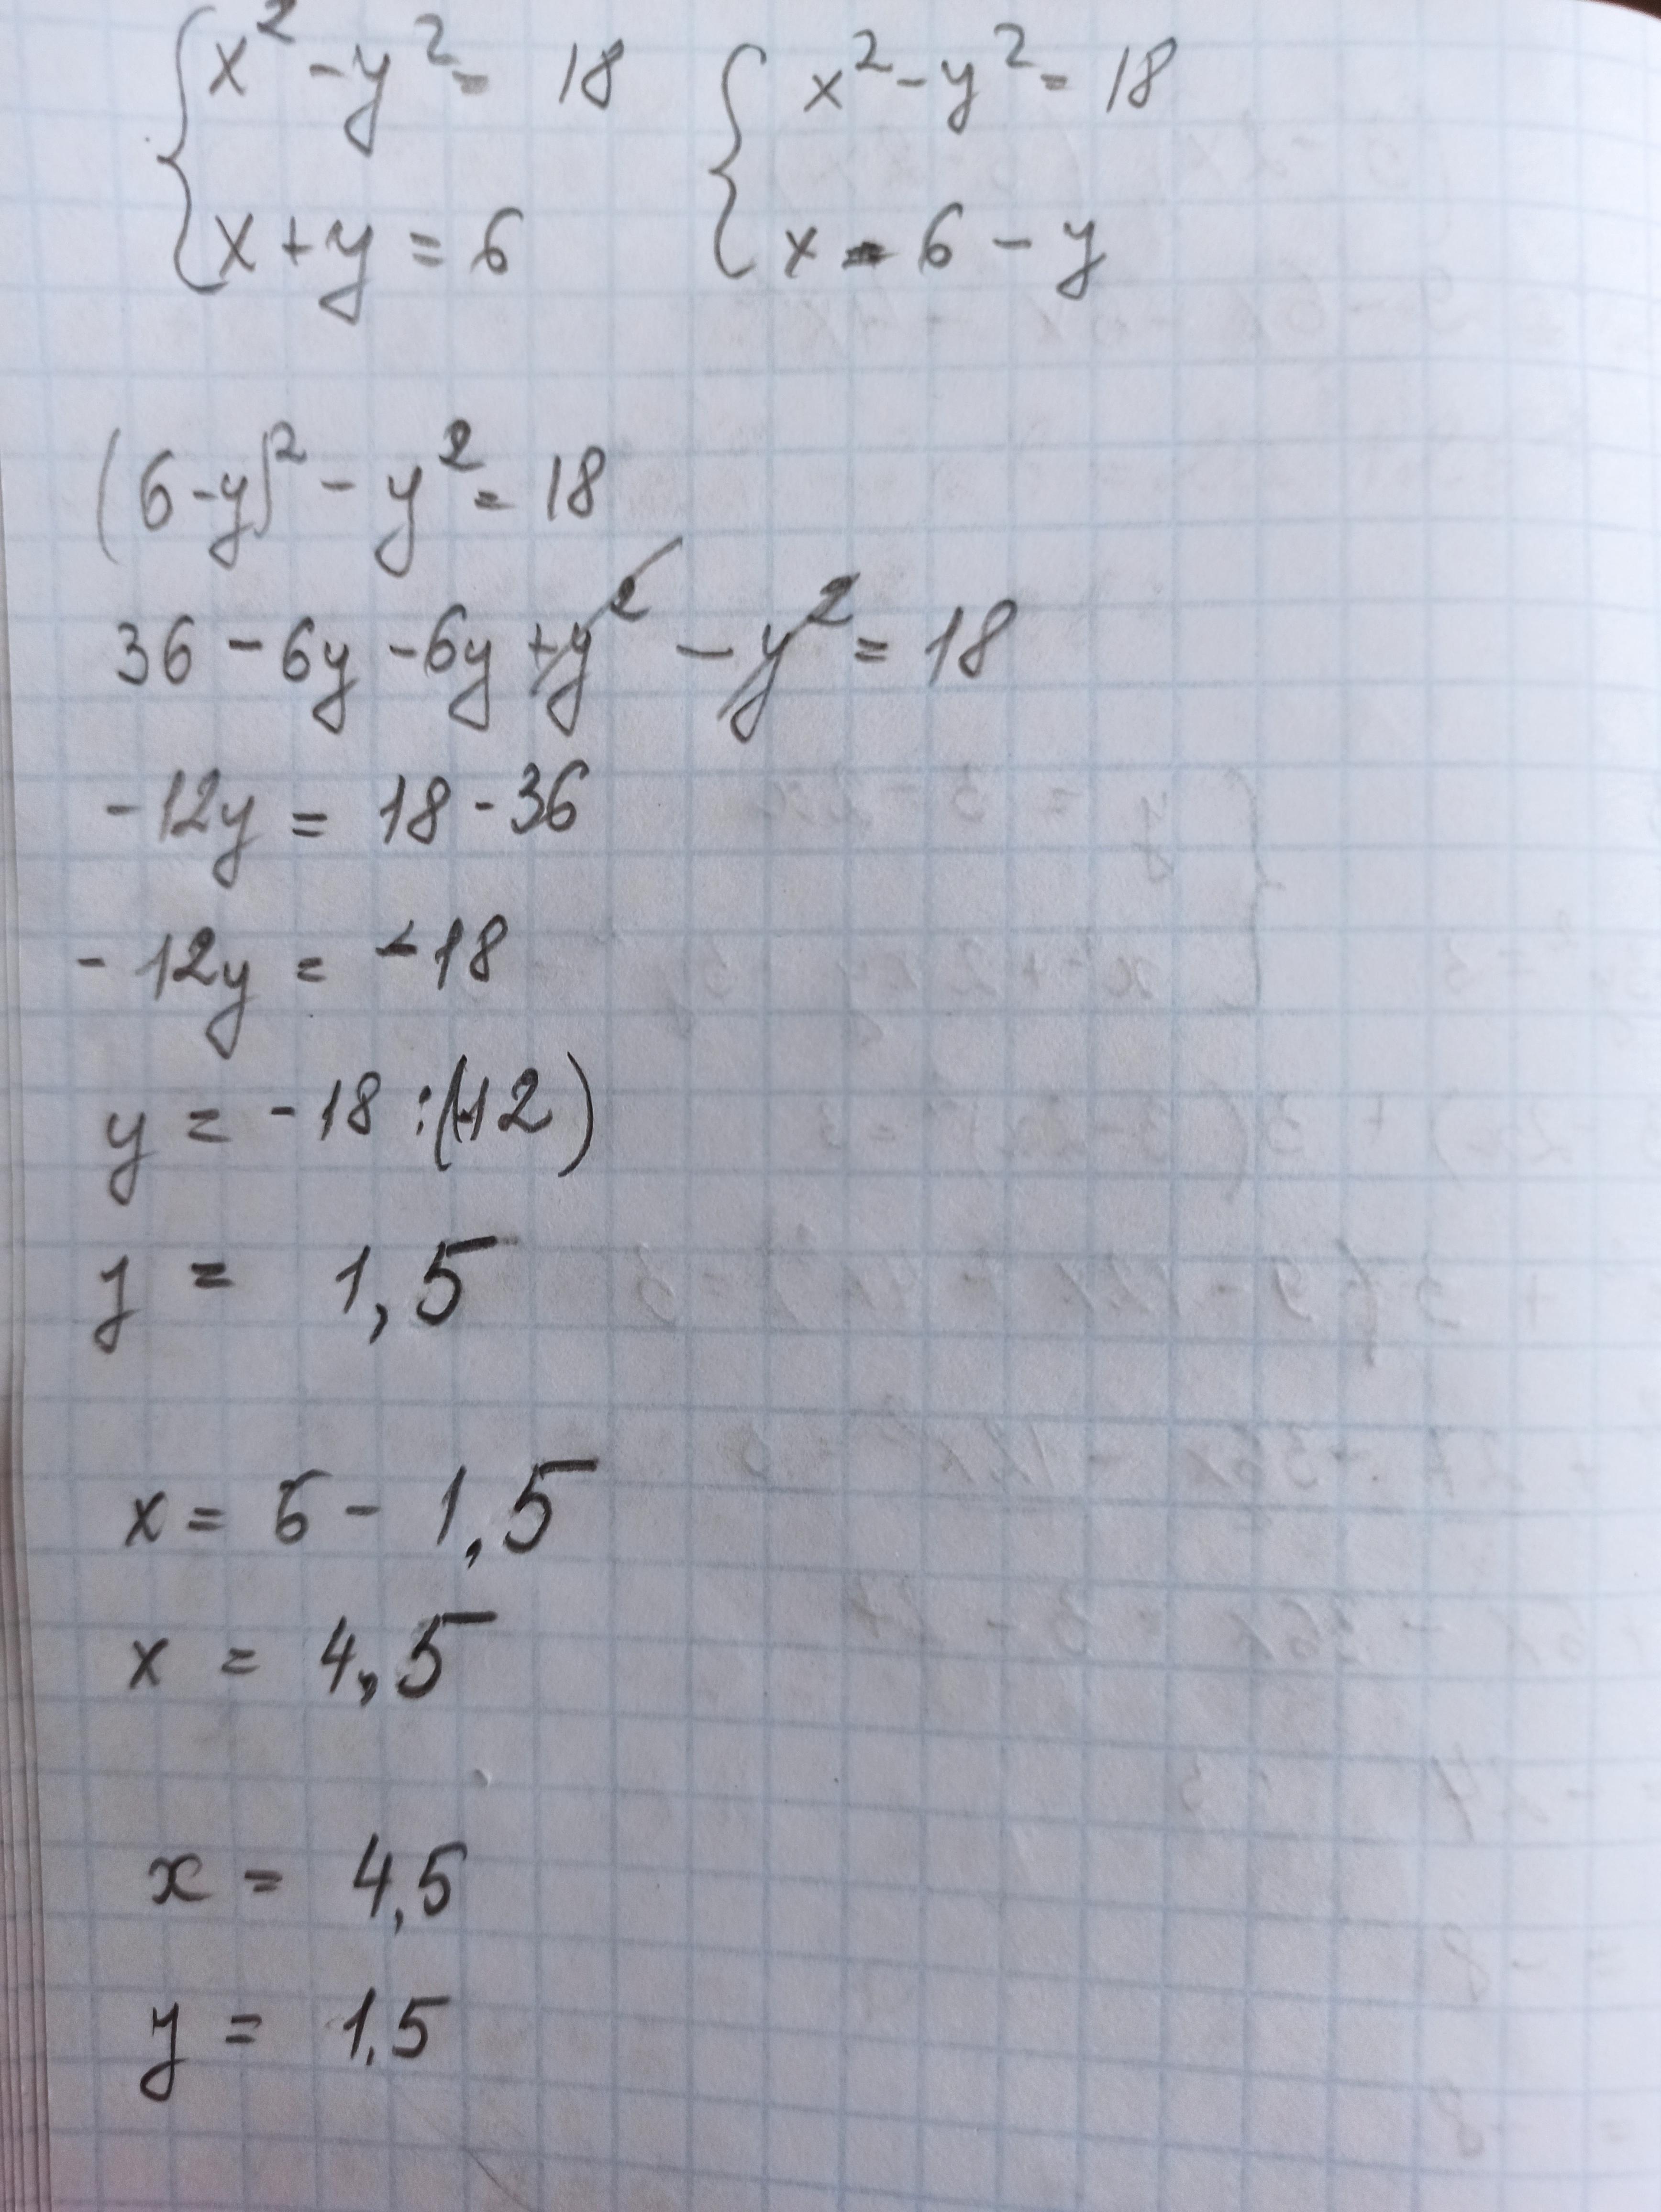 x² - y² = 18
x + y = 6
x² - y² = 18
x = 6 - y
(6 - y)² - y² = 18
36 - 6y - 6y + y² - y² = 18
-12y = 18 - 36
-12y = -18
y = -18 : (-12)
y = 1,5
x = 6 - 1,5
x = 4,5
x = 4,5
y = 1,5